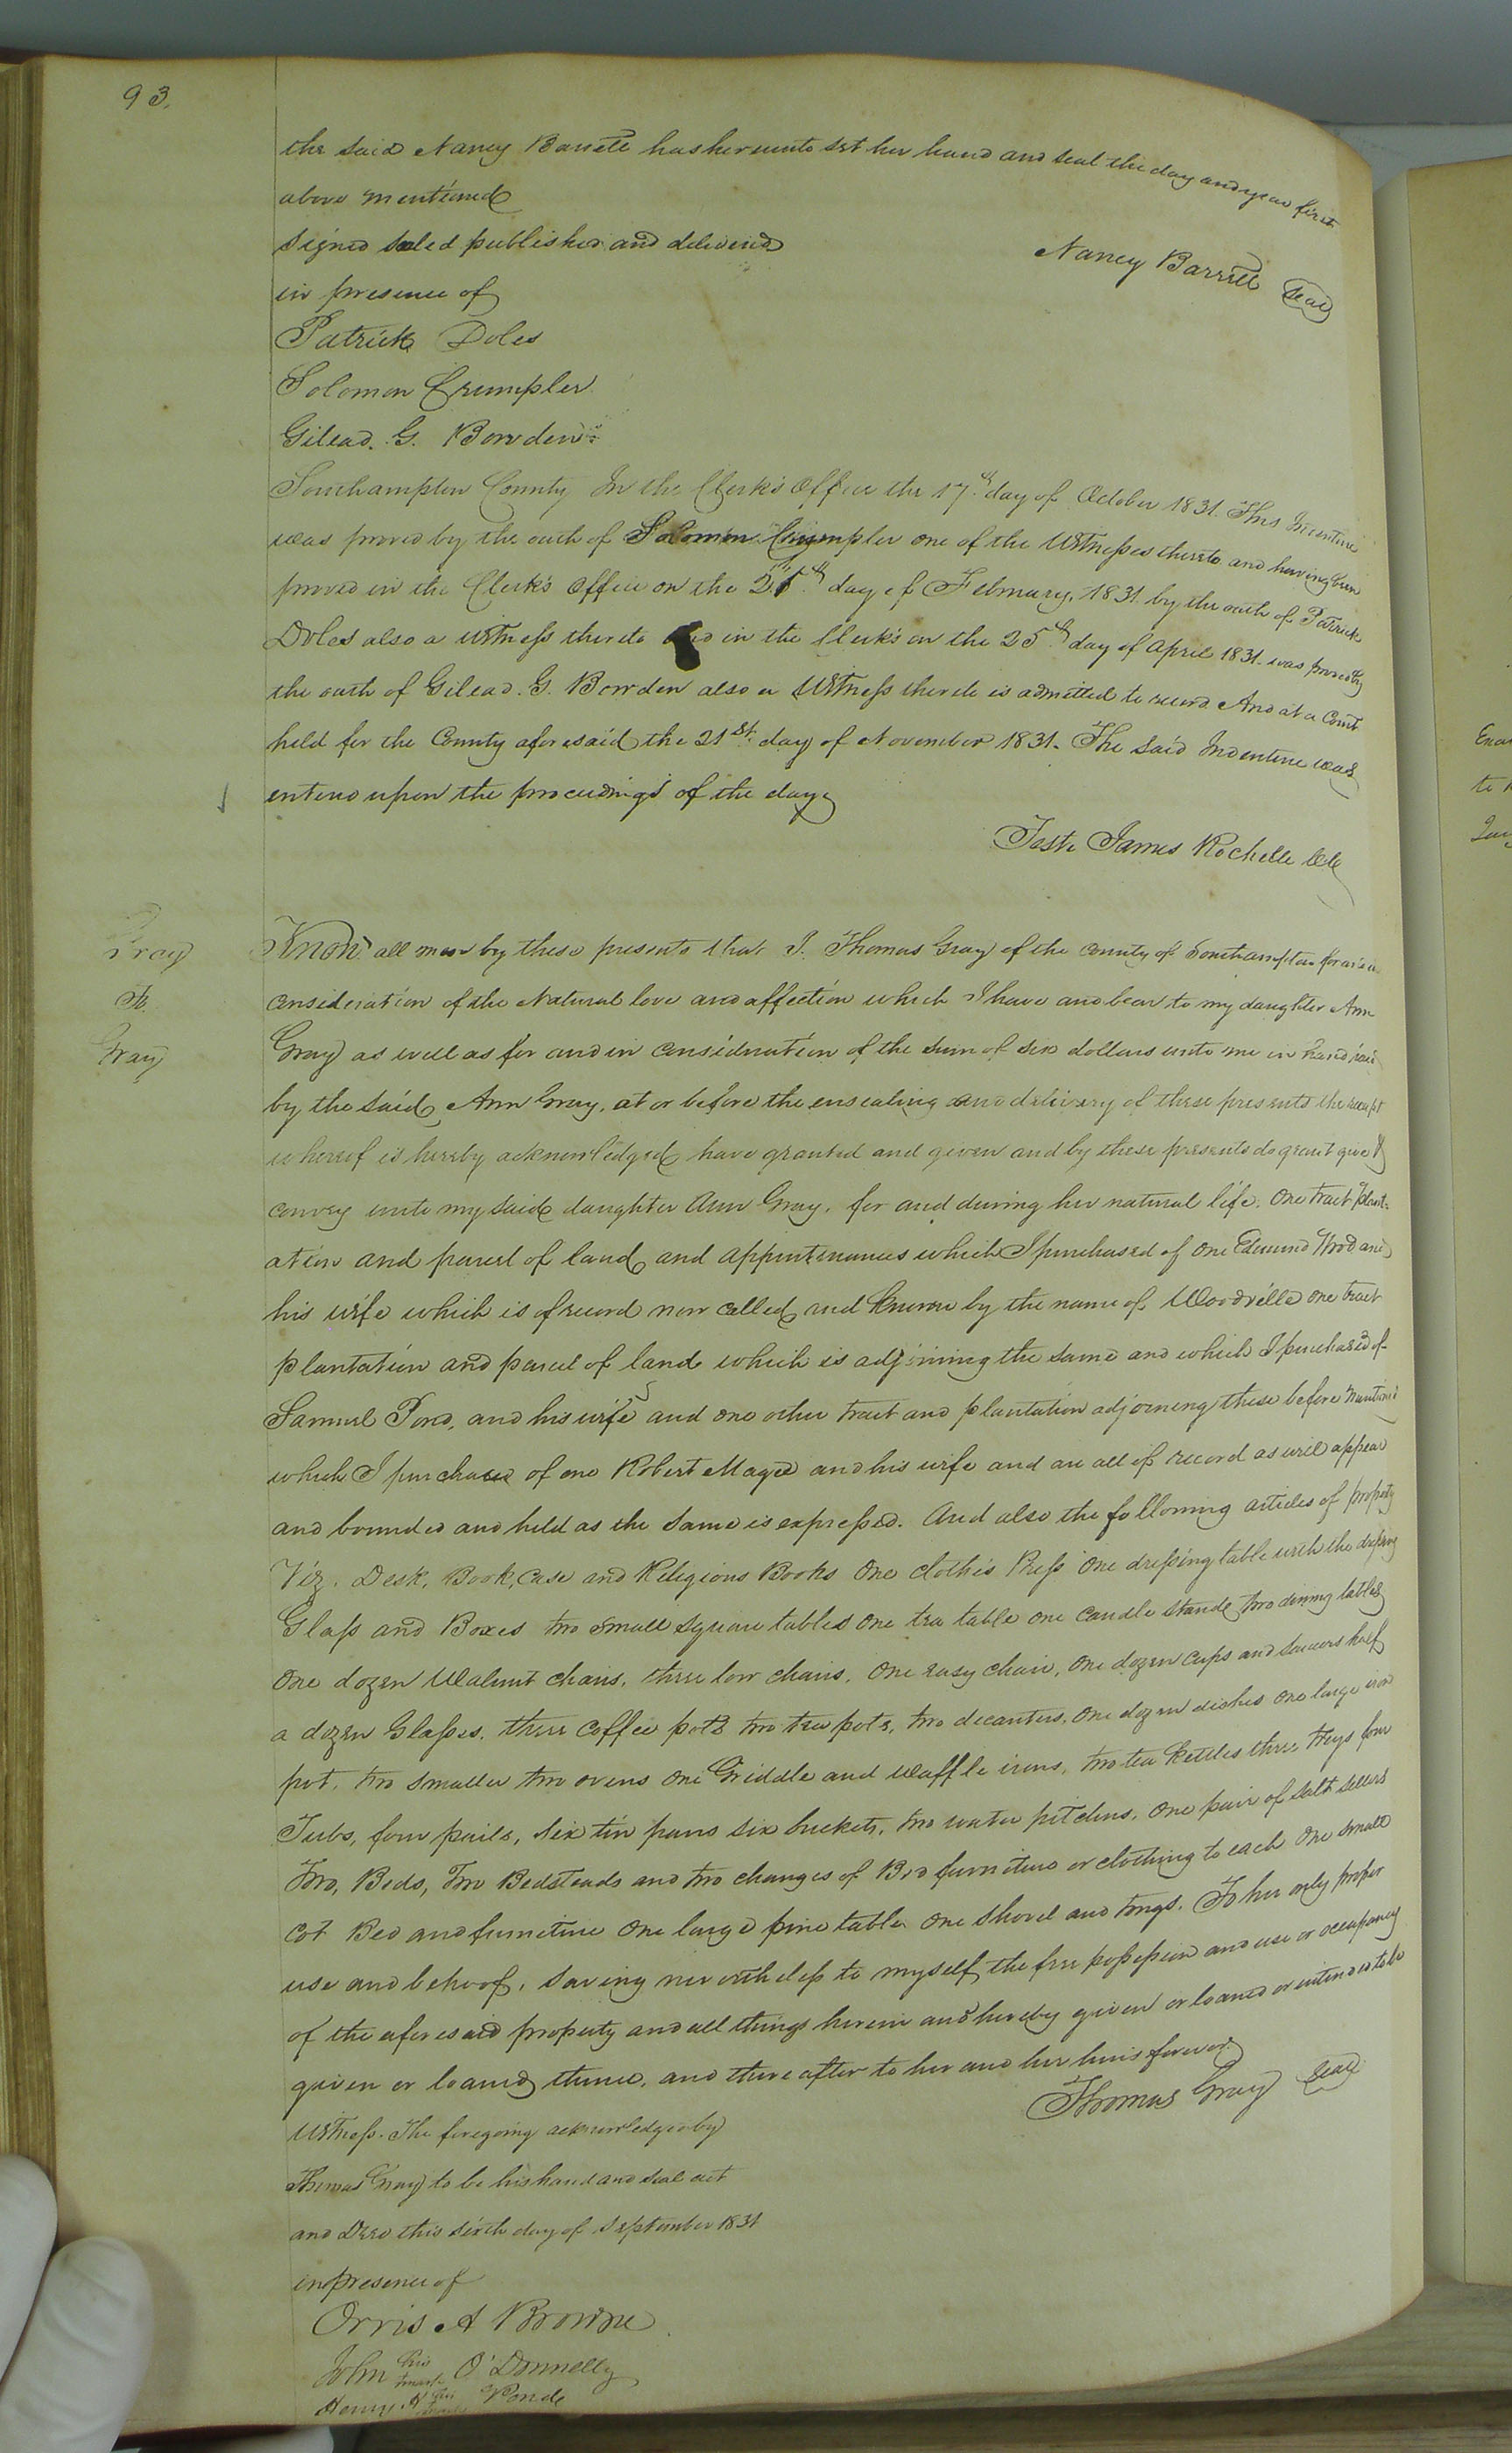 93.
the said Nancy Barrett has hereunto set her hand and seal the day and year first
above mentioned
Signed sealed published and delivered
Nancy Barrett seal
in presence of
Patrick Doles
Solomon Crumpler
Gilead. G. Bowden
Southampton County In the Clerk's Office the 17th day of October 1831. This Indenture
was proved by the oath of Solomon Crumpler one of the Witnesses thereto and having been
proved in the Clerk's Office on the day of February, 1831. by the oath of Patrick
Doles also a witness thereto and in the Clerk's on the 25th day of April 1831. was proved by
the oath of Gilead. G. Bowden also a Witness thereto is admitted to record. And at a Court
held for the County aforesaid the 21st day of November 1831. The said Indenture was
entered upon the proceedings of the day
Teste James Rochelle
Gray
To
Gray
Know all men by these presents that I. Thomas Gray of the County of Southampton for and in
consideration of the Natural love and affection which I have and bear to my daughter Ann
Gray as well as for and in consideration of the sum of six dollars unto me in hand paid
by the said Ann Gray, at or before the ensealing and delivery of these presents the receipt
whereof is hereby acknowledged have granted and given and by these presents do grant give &
convey unto my said daughter Ann Gray, for and during her natural life. One tract plant-
ation and parcel of land and appurtenances which I purchased of one Edmund Wood and
his wife which is of record now called and known by the name of Woodville one tract
plantation and parcel of land which is adjoining the same and which I purchased of
Samuel Pond, and his wife and one other tract and plantation adjoining these before mentioned
which I purchased of one Robert Maget and his wife and are all of record as will appear
and bounded and held as the same is expressed. And also the following articles of property
Viz. Desk, Book, case and Religious Books One clothes Press One dressing table with the dressing
Glass and Boxes two small square tables one tea table one candle stand two dining tables
One dozen Walnut chairs, three low chairs, One easy chair, One dozen cups and saucers half
a dozen Glasses, three coffee pots two tea pots, two decanters, one dozen dishes one large iron
pot, two smaller two ovens one Griddle and waffle irons, two tea kettles three trays four
Tubs, four pails, six tin pans six buckets, two water pitchers, One pair of salt sellers
Two, Beds, Two Bedsteads and two changes of Bed furniture or clothing to each One small
Cot Bed and furniture One large pine table One shovel and tongs. To her only proper
use and behoof, saving nevertheless to myself the free possession and use or occupancy
of the aforesaid property and all things herein and hereby given or loaned or intended to be
given or loaned thence, and there after to her and her heirs forever
Thomas Gray seal
Witness. The foregoing acknowledged by
Thomas Gray to be his hand and seal act
and Deed this sixth day of September 1831
in presence of
Orris A Browne
John his mark O'Donnelly
Henry his mark Ponde